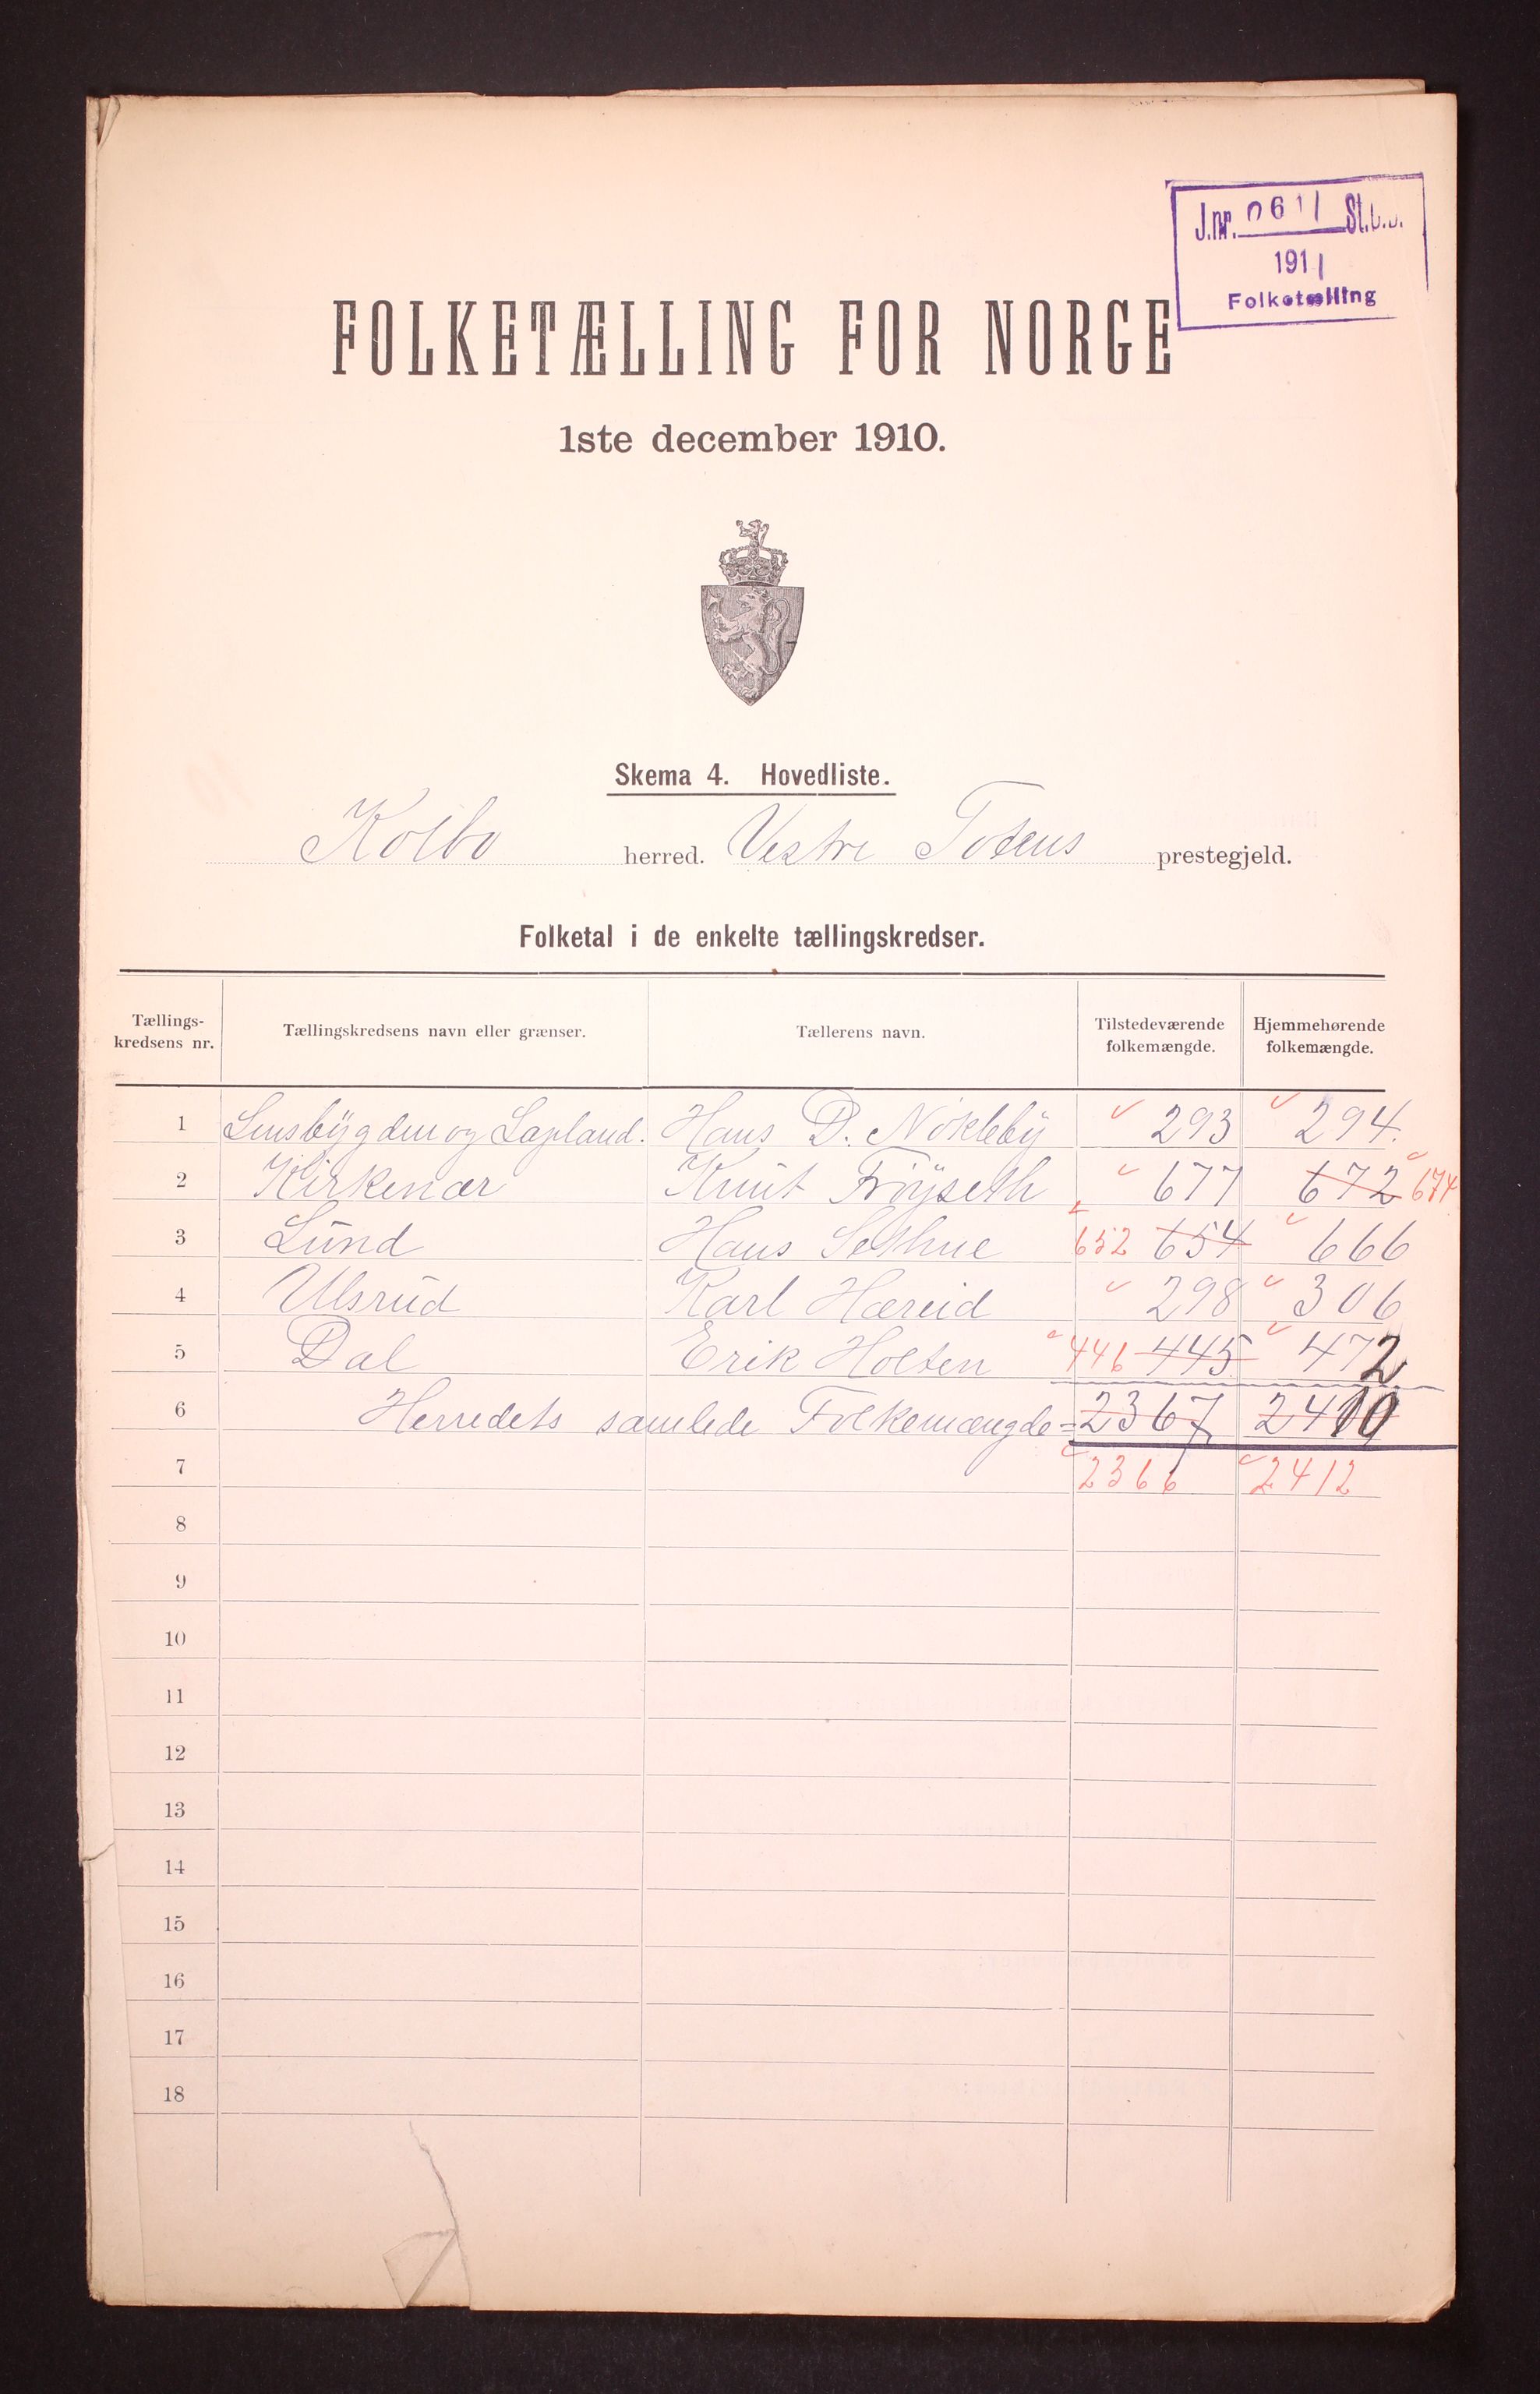 J.nr. 0611 St.c.b.
1911
Folketælling
FOLKETÆLLING FOR NORGE
1ste december 1910.
Skema 4. Hovedliste.
Kolbu herred. Vestre Totens prestegjeld.
Folketal i de enkelte tællingskredser.
Tællings-kredsens nr. Tællingskredsens navn eller grænser. Tællerens navn. Tilstedeværende folkemængde. Hjemmehørende folkemængde.
1 og Lapland. Hans D. Nökleby 293 294.
2 Kirkenær Knut Fröyseth 677 672 674
3 Lund Hans Sethne 652 654 666
4 Ulsrud Karl Hæreid 298 306
5 Dal Erik Holten 446 445 472
6 Herredets samlede Folkemængde = 2367 2410
7 2366 2412
8
9
10
11
12
13
14
15
16
17
18